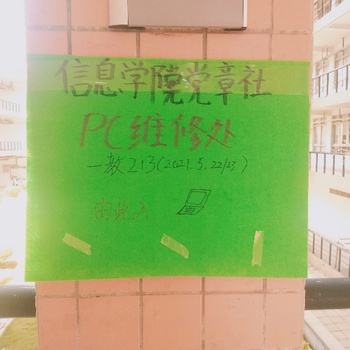 信息学院党章社
PC维修处
一教213(2021.5.22/23)